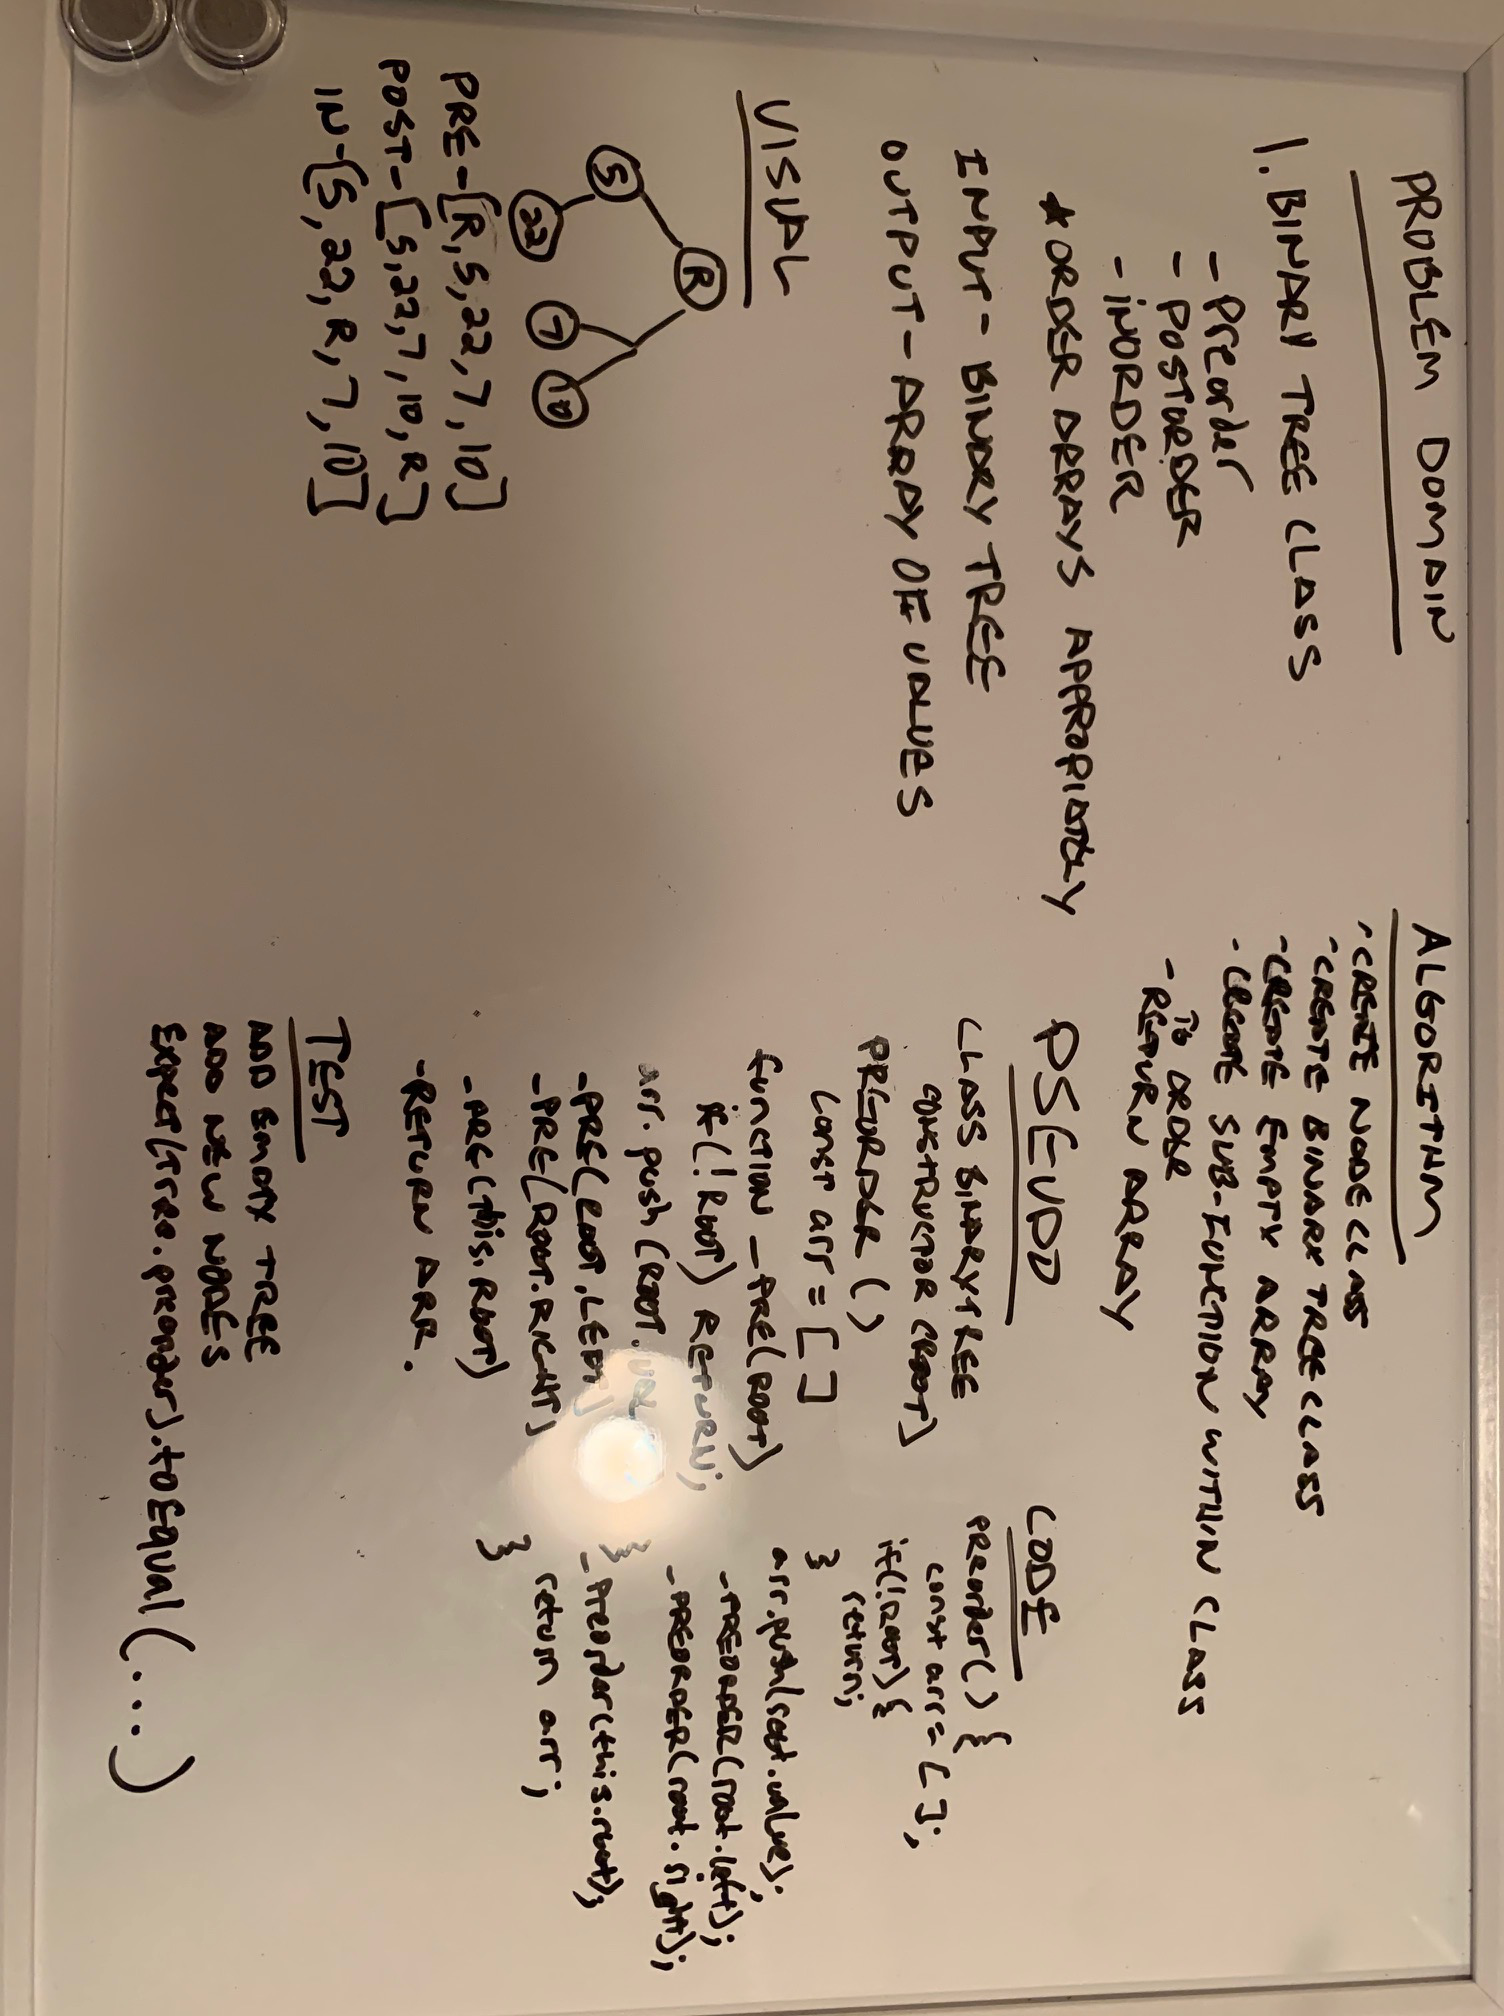 PROBLEM DOMAIN
1. BINARY TREE CLASS
- Preorder
- POSTORDER
- iNORDER
* ORDER ARRAYS APPROPIATELY
INPUT - BINARY TREE
OUTPUT - ARRAY OF VALUES
VISUAL
R
5
22
7
10
PRE - [R, 5, 22, 7, 10]
POST - [5, 22, 7, 10, R]
IN - [5, 22, R, 7, 10]
ALGORITHM
- CREATE NODE CLASS
- CREATE BINARY TREE CLASS
- CREATE EMPTY ARRAY
- CREATE SUB-FUNCTION WITHIN CLASS
TO ORDER
- RETURN ARRAY
PSEUDO
CLASS BINARYTREE
CONSTRUCTOR (ROOT)
PREORDER ()
const arr = [ ]
function _PRE(ROOT)
if(!ROOT) RETURN;
arr.push(ROOT.
_PRE(ROOT.LEFT)
_PRE(ROOT.RIGHT)
_PRE(this.ROOT)
-RETURN ARR.
TEST
ADD EMPTY TREE
ADD NEW NODES
Expect(tree.preorder).toEqual(....)
CODE
Preorder() {
const arr = [ ];
if(!root) {
return;
}
arr.push(root.value);
_PREORDER(root.left);
_PREORDER(root.right);
}
_Preorder(this.root);
return arr;
}